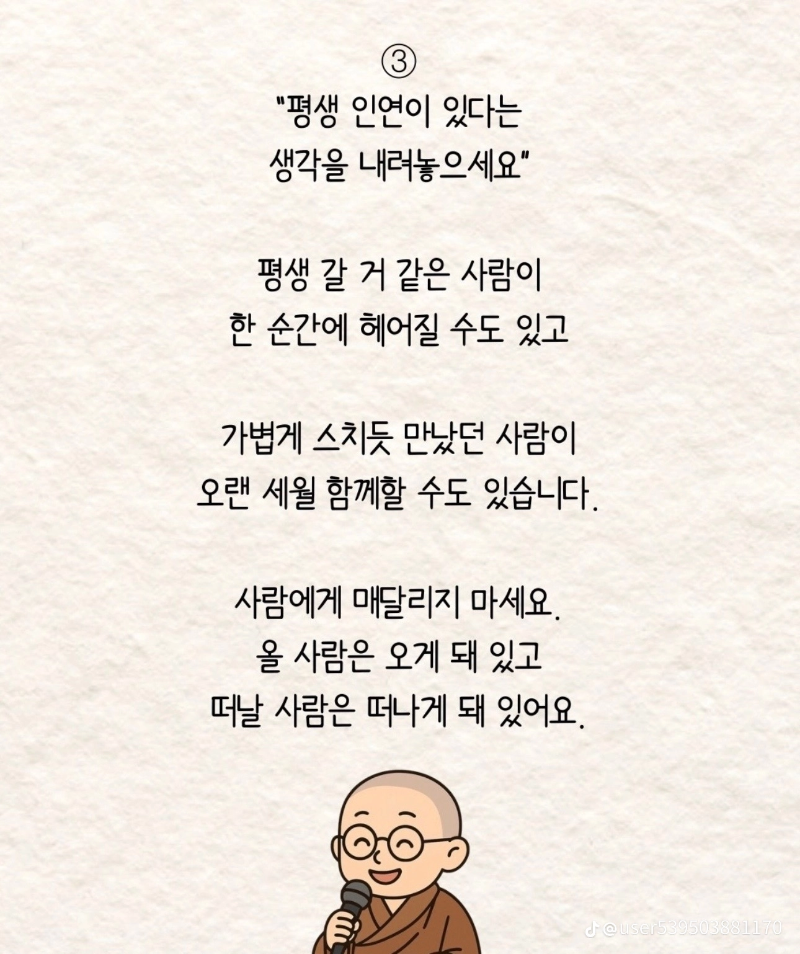 ③
"평생 인연이 있다는
생각을 내려놓으세요"
평생 갈 거 같은 사람이
한 순간에 헤어질 수도 있고
가볍게 스치듯 만났던 사람이
오랜 세월 함께할 수도 있습니다.
사람에게 매달리지 마세요.
올 사람은 오게 돼 있고
떠날 사람은 떠나게 돼 있어요.